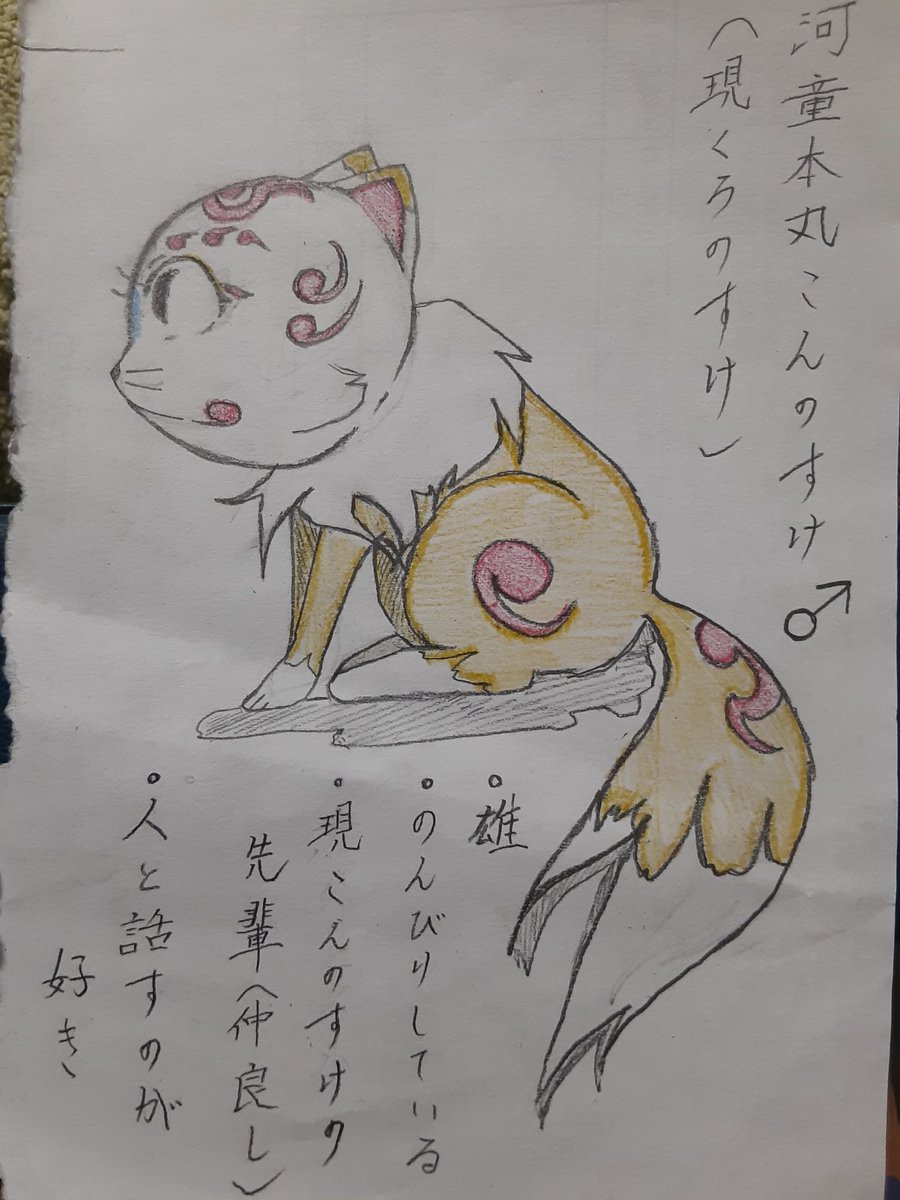 河童本丸こんのすけ♂
(現くろのすけ)
・雄
・のんびりしている
・現こんのすけの
先輩(仲良し)
・人と話すのが
好き